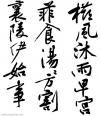 櫛風沐雨卑宮
菲食湯方割
襄陵伊始事